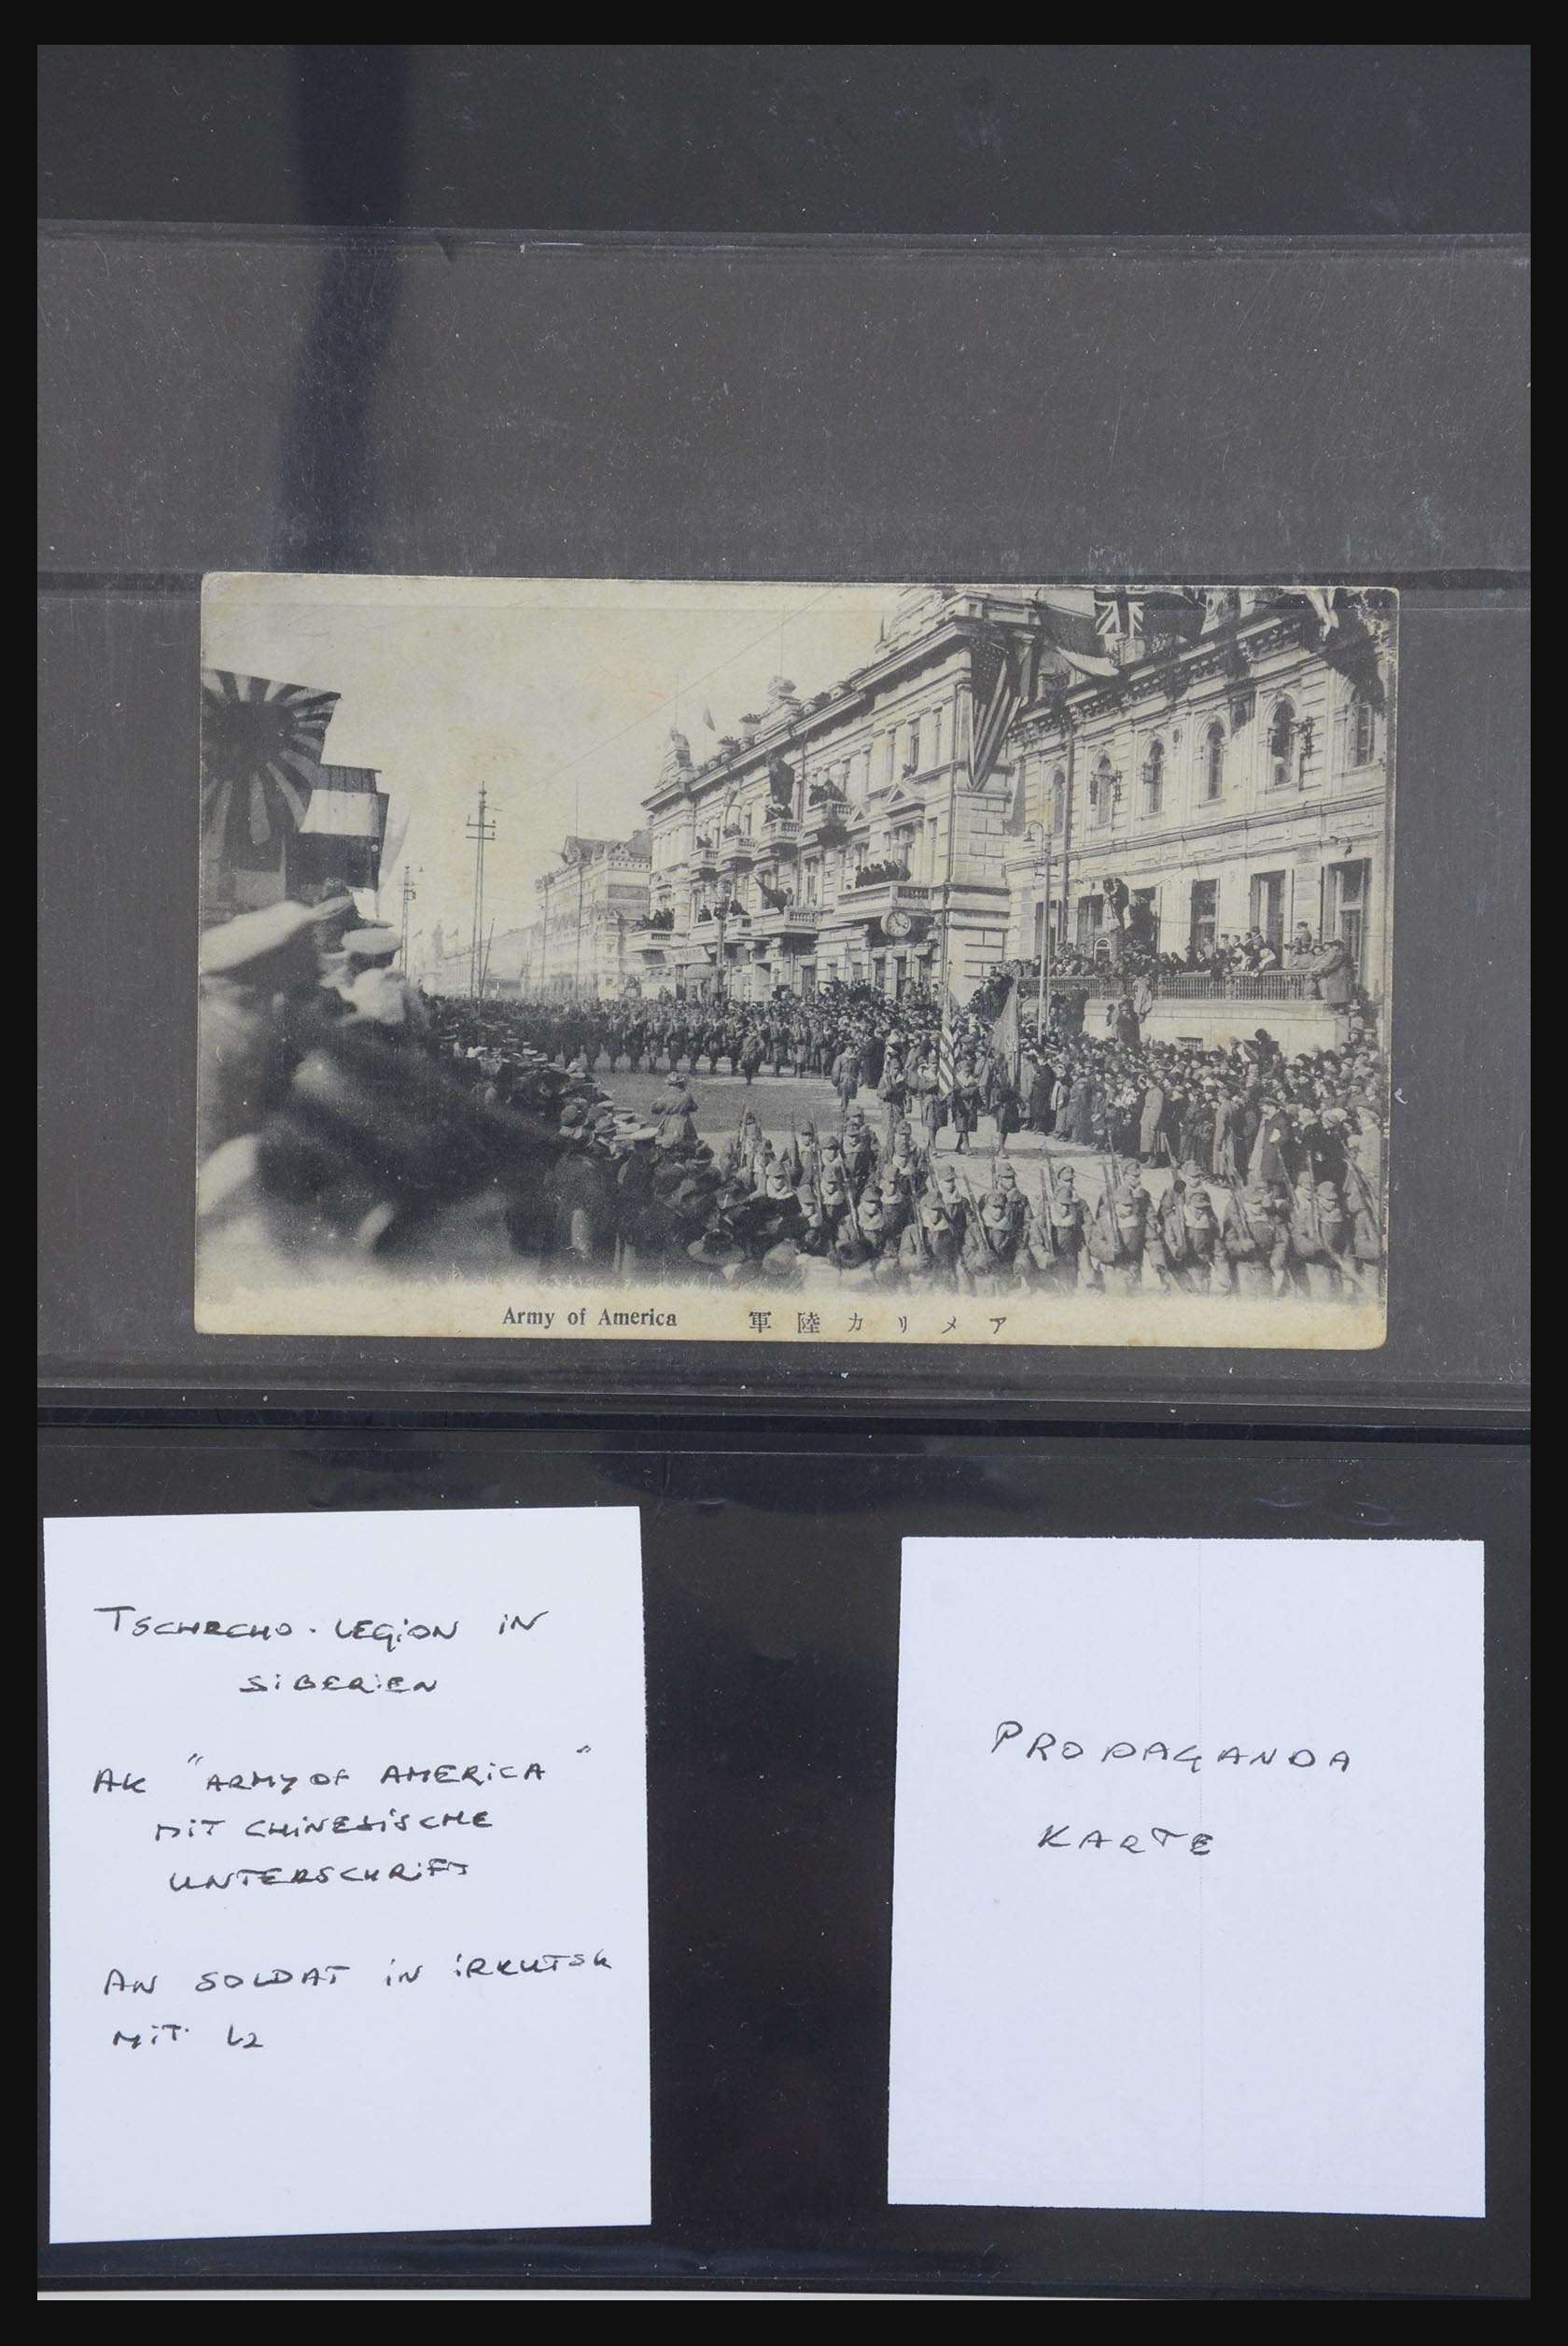 Army of America 軍陸カリメア
TSCHECHO. LEGION IN
SIBERIEN
AK "ARMY OF AMERICA"
MIT CHINESISCHE
UNTERSCHRIFT
AN SOLDAT IN IRKUTSK
MIT L2
PROPAGANDA
KARTE